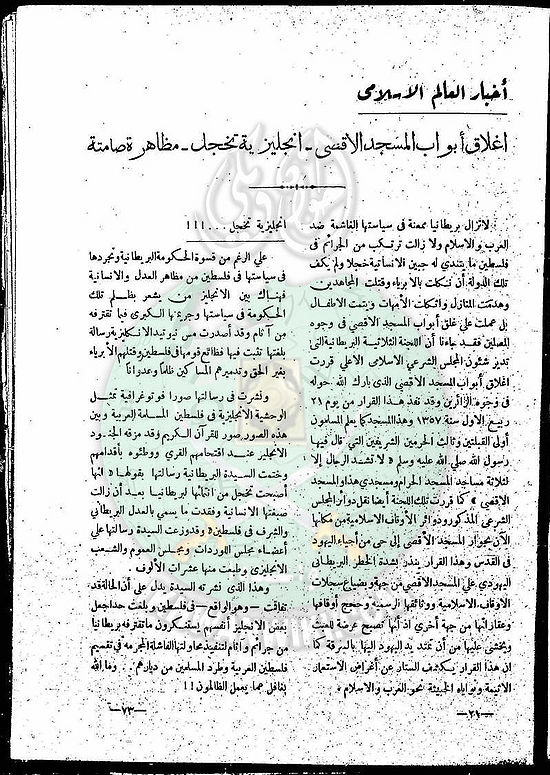 أخبار العالم الاسلامى
اغلاق أبواب المسجد الاقصى – انجليزية تخجل – مظاهرة صامتة
لاتزال بريطانيا ممعنة فى سياستها الغاشمة ضد
العرب والاسلام ولا زالت ترتكب من الجرائم فى
فلسطين ما يتندى له جبين الانسانية خجلا ولم يكف
تلك الدولة أن نكلت بالابرياء وقتلت المجاهدين
وهدمت المنازل واثكلت الأمهات ويتمت الاطفال
بل عملت على غلق أبواب المسجد الاقصى فى وجوه
المصلين فقد جاءنا أن اللجنة الثلاثية البريطانية التى
تدير شئون المجلس الشرعى الاسلامى الاعلى قررت
اغلاق أبواب المسجد الاقصى الذى بارك الله حوله
فى وجوه الزائرين وقد نفذ هذا القرار من يوم ٢١
ربيع الاول سنة ١٣٥٧ وهذا المسجد كما يعلم المسلمون
أولى القبلتين وثالث الحرمين الشريفين التى قال فيها
رسول الله صلى الله عليه وسلم « لا تشد الرحال إلا
لثلاثة مساجد المسجد الحرام ومسجدى هذا والمسجد
الاقصى » كما قررت تلك اللجنة أيضا نقل دوائر المجلس
الشرعى المذكور ودوائر الأوقاف الاسلامية من مكانها
الآن بجوار المسجد الاقصى إلى حى من أحياء اليهود
فى القدس وهذا القرار ينذر بشدة الخطر البريطانى
اليهودى على المسجد الاقصى من جهة وبضياع سجلات
الاوقاف الاسلامية ووثائقها الرسمية وحجج أوقافها
وعقاراتها من جهة أخرى اذ أنها تصبح عرضة للعبث
ويخشى عليها من أن تمتد يد اليهود اليها بالسرقة كما
ان هذا القرار يكشف الستار عن أغراض الاستعمار
الاثيمة ونواياه الخبيثة نحو العرب والاسلام
انجليزية تخجل ... !!!
على الرغم من قسوة الحكومة البريطانية وتجردها
فى سياستها فى فلسطين من مظاهر العدل والانسانية
فهناك بين الانجليز من يشعر بظلم تلك
الحكومة فى سياستها وجريمتها الكبرى فيما تقترفه
من آثام وقد أصدرت مس نيوتن الانكليزية رسالة
بلغتها تثبت فيها فظائع قومها فى فلسطين وقتلهم الأبرياء
بغير الحق وتدميرهم المساكين ظلماً وعدواناً
ونشرت فى رسالتها صورا فوتوغرافية تمثل
الوحشية الانجليزية فى فلسطين المسلمة العربية وبين
هذه الصور صور للقرآن الكريم وقد مزقه الجنود
الانجليز عند اقتحامهم القرى ووطئوه بأقدامهم
وختمت السيدة البريطانية رسالتها بقولها « انها
أصبحت تخجل من انتمائها لبريطانيا بعد أن زالت
صبغتها الانسانية وفقدت ما يسمى بالعدل البريطانى
والشرف فى فلسطين » وقد وزعت السيدة رسالتها على
أعضاء مجلس اللوردات ومجلس العموم والشعب
الانجليزى وطبعت منها عشرات الألوف .
وهذا الذى نشرته السيدة يدل على أن الحالة قد
تفاقت – وهو الواقع – فى فلسطين وبلغت حدا جعل
بعض الانجليز أنفسهم يستنكرون ما تقترفه بريطانيا
من جرائم وآثام لتنفيذ محاولتها الفاشلة المجرمة فى تقسيم
فلسطين العربية وطرد المسلمين من ديارهم .. وما الله
بغافل عما يعمل الظالمون !!